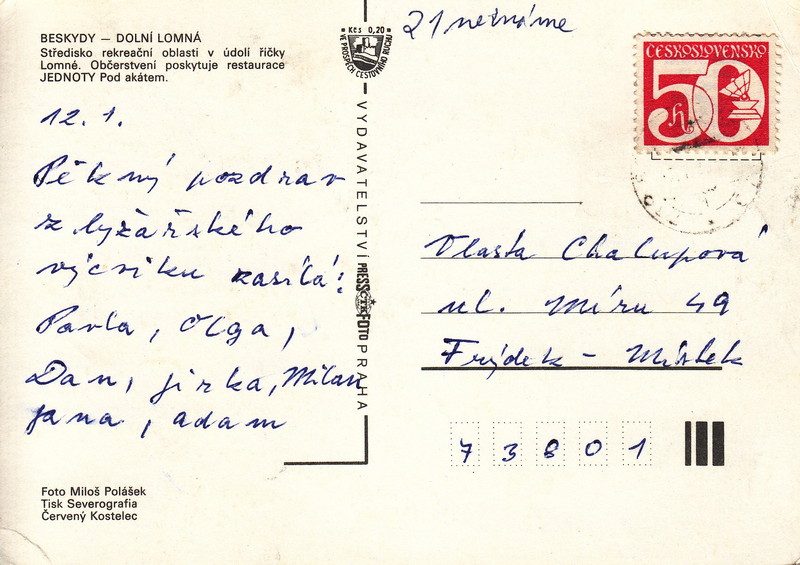 BESKYDY — DOLNÍ LOMNÁ
Středisko rekreační oblasti v údolí říčky
Lomné. Občerstvení poskytuje restaurace
JEDNOTY Pod akátem.
12. 1.
Pěkný pozdrav
z lyžařského
výcviku zasílá:
Pavla, Olga,
Dan, Jirka, Milan
Jana, Adam
Foto Miloš Polášek
Tisk Severografia
Červený Kostelec
Kčs 0,20
VE PROSPĚCH CESTOVNÍHO RUCHU
VYDAVATELSTVÍ PRESSFOTO PRAHA
ČTK
21 neznáme
ČESKOSLOVENSKO
50 h
Vlasta Chalupová
ul. Míru 49
Frýdek - Místek
73801